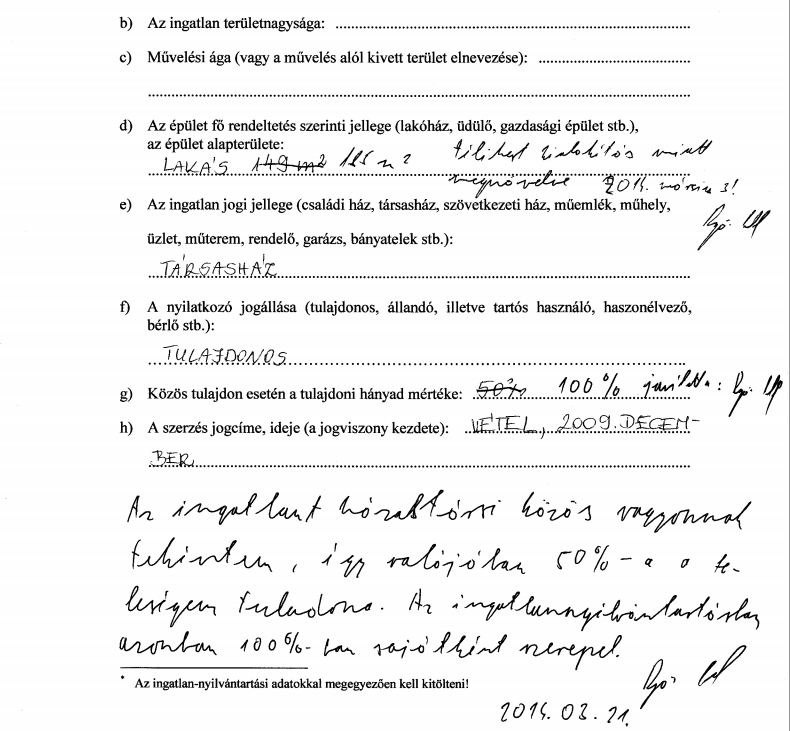 b) Az ingatlan területnagysága:
c) Művelési ága (vagy a művelés alól kivett terület elnevezése):
d) Az épület fő rendeltetés szerinti jellege (lakóház, üdülő, gazdasági épület stb.),
az épület alapterülete:
LAKÁS 149 m2 125 m2 télikert kialakítás miatt
megnövelve 2014. március 3!
e) Az ingatlan jogi jellege (családi ház, társasház, szövetkezeti ház, műemlék, műhely,
üzlet, műterem, rendelő, garázs, bányatelek stb.):
TÁRSASHÁZ
f) A nyilatkozó jogállása (tulajdonos, állandó, illetve tartós használó, haszonélvező,
bérlő stb.):
TULAJDONOS
g) Közös tulajdon esetén a tulajdoni hányad mértéke: 50% 100% javította:
h) A szerzés jogcíme, ideje (a jogviszony kezdete): VÉTEL, 2009. DECEM-
BER
Az ingatlant házastársi közös vagyonnak
tekintem, így valójában 50%-a a fe-
leségem tuladona. Az ingatlannyilvántartásban
azonban 100%-ban sajátként szerepel.
* Az ingatlan-nyilvántartási adatokkal megegyezően kell kitölteni!
2014. 03. 21.